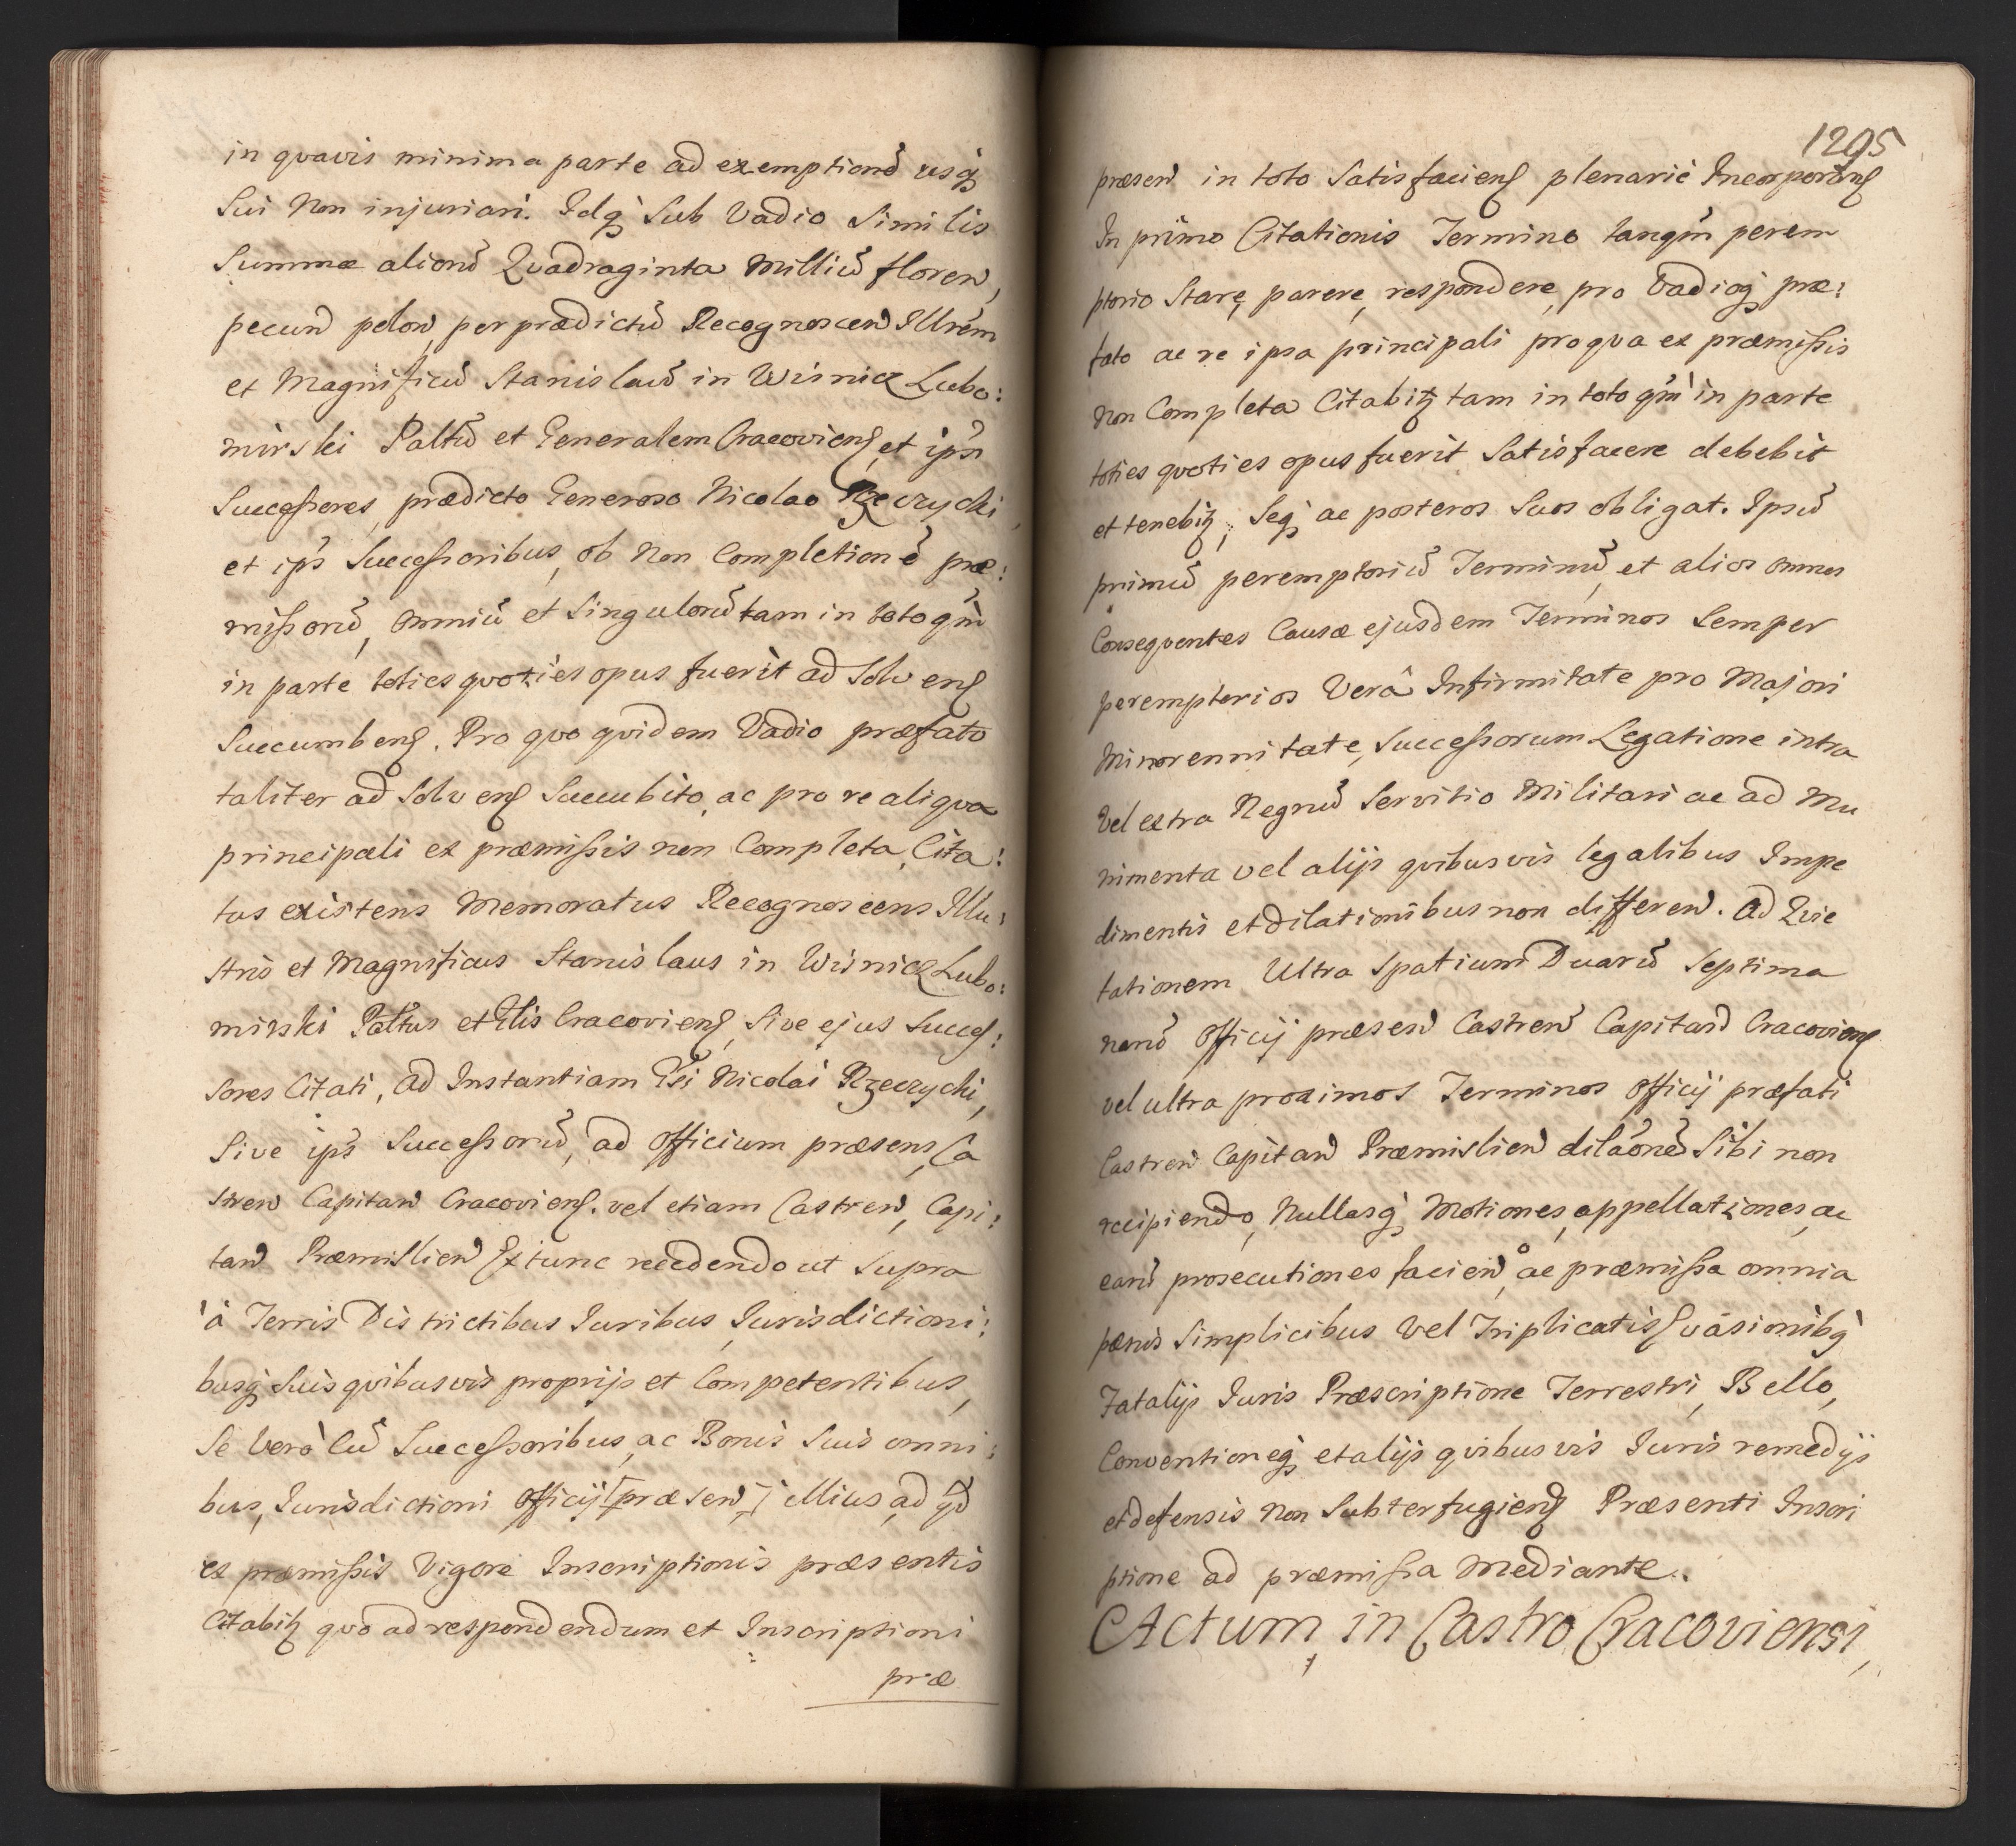 in qvavis minima parte ad exemptionē usq̨
Sui Non injuriari. Idq̨ Sub Vadio Similis
Summæ alionū Qvadraginta Milliū floren̄,
pecun̄ polon̄, per prædictū Recognoscen̄ Illrēm
et Magnificū Stanislaū in Wisnicz Lubo:
mirski Palt̄ū et Generalem Cracovienſ, et ips̄i
Succeſsores, prædicto Generoso Nicolao Rzeczycki,
et ips̄ Succeſsoribus, ob Non Completionē præ:
miſsorū, Omniū et Singulorū tam in toto qm̄
in parte toties qvoties opus fuerit ad Solvenſ
Succumbenſ. Pro qvo qvidem Vadio præfato
taliter ad Solvenſ Succubito, ac pro re aliqva
principali ex præmiſsis non Completa, Cita:
tus existens Memoratus Recognoscens Illu:
stris et Magnificus Stanislaus in Wisnicz Lubo:
mirski Paltus et Glis Cracovienſ, Sive ejus Succeſ:
sores Citati, ad Instantiam Gsi Nicolai Rzeczycki,
Sive ips̄ Succeſsorū, ad Officium præsens, Ca
stren̄ Capitan̄ Cracovienſ. vel etiam Castren̄, Capi:
tan̄ Præmislien̄ Extunc recedendo ut Supra
à Terris Districtibus Iuribus, Iurisdictioni:
busq̨ Suis qvibusvis proprijs et Competentibus,
Se Verò Cū Succeſsoribus, ac Bonis Suis omni:
bus, Iurisdictioni Officij [præsen̄] illius, ad qd̄
ex præmiſsis Vigore Inscriptionis præsentis
Citabitꝫ qvo ad respondendum et Inscriptioni
præ
1295
præsen̄ in toto Satisfacienſ plenariè Incorporanſ
In primo Citationis Termino tanqm̄ perem
ptorio Stare, parere, respondere, pro Vadioq̨ præ:
fato ac re ipsa principali pro qva ex præmiſsis
Non Completa Citabitꝫ tam in toto qm̄ in parte
toties qvoties opus fuerit Satisfacere debebit
et tenebitꝫ, Seq̨ ac posteros Suos obligat. Ipsū
primū peremptoriū Terminū, et alios Omnes
Conseqventes Causæ ejusdem Terminos Semper
peremptorios Verâ Infirmitate pro Majori
Minorennitate, Succeſsorum Legatione intra
Vel extra Regnū Servitio Militari ac ad Mu
nimenta vel alijs qvibusvis legalibus Impe
dimentis et dilationibus non differen̄. Ad Qvie
tationem Ultra Spatium Duarū Septima
narū Officij præsen̄ Castren̄ Capitan̄ Cracovienſ
vel ultra proximos Terminos Officij præfati
Castren̄ Capitan̄ Præmislien̄ dilāonē Sibi non
recipiendo, Nullasq̨ Motiones, appellationes, ac
earū prosecutiones facien̄, ac præmiſsa omnia
pænis Simplicibus Vel Triplicatis Evasionibq̨
Fatalijs Iuris Præscriptione Terrestri, Bello,
Conventioneq̨ et alijs qvibusvis Iuris remedijs
et defensis Non Subterfugienſ Præsenti Inscri
ptione ad præmiſsa Mediante.
Actum in Castro Cracoviensi,